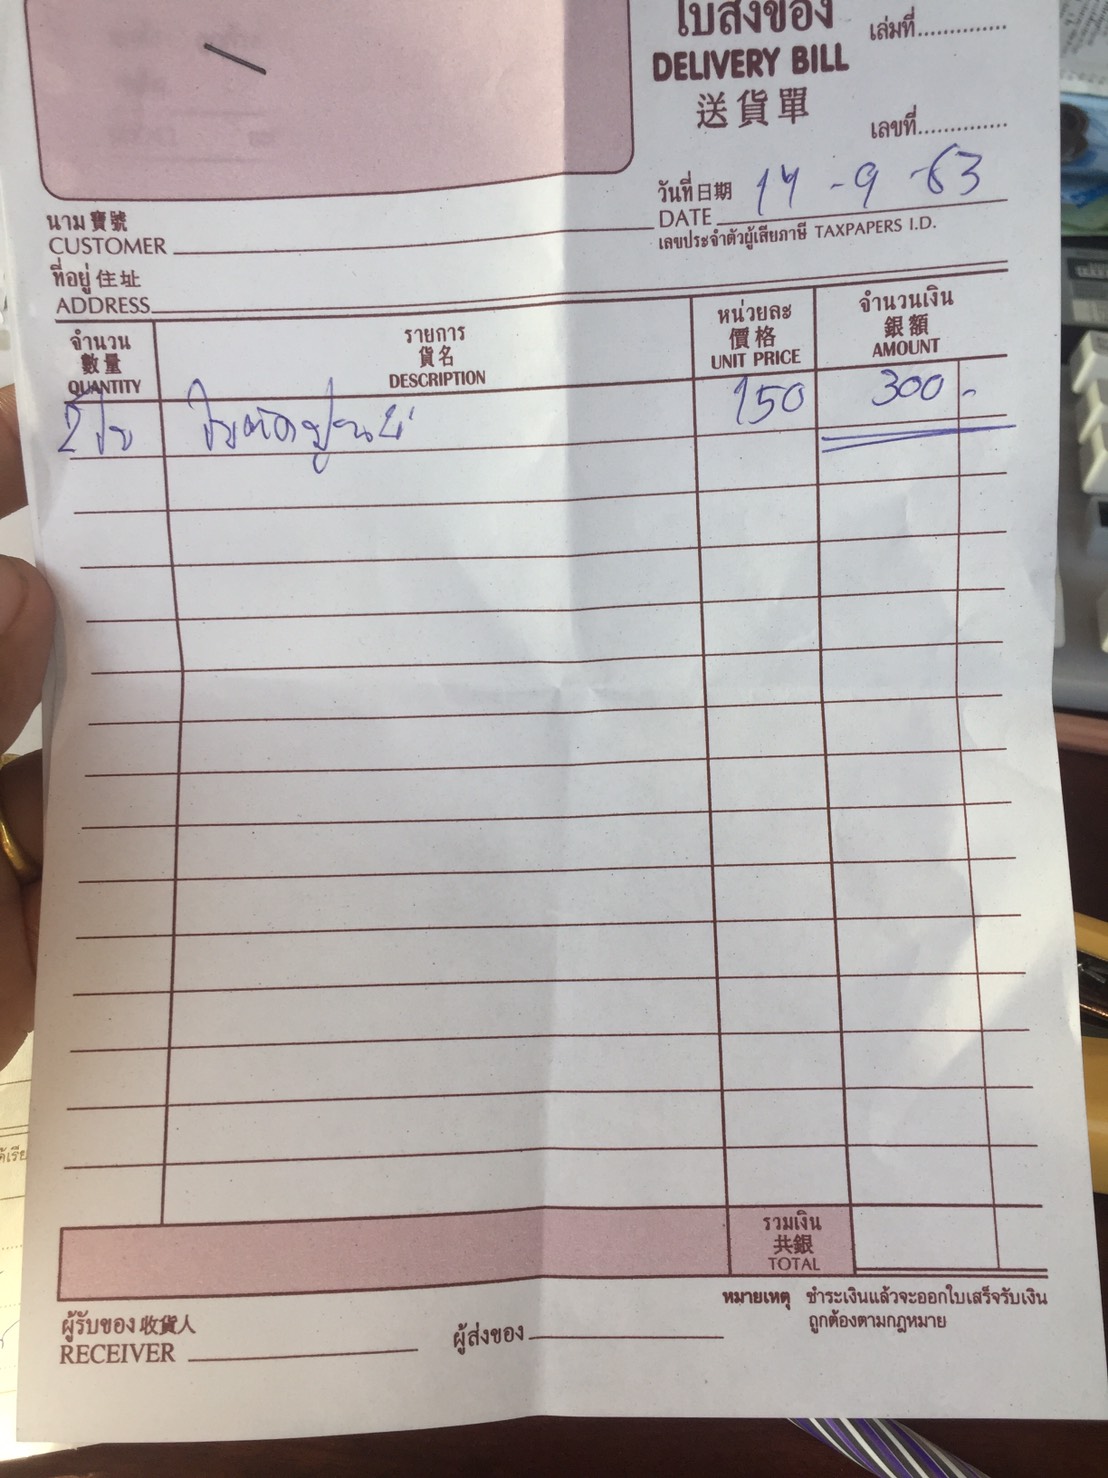 ใบส่งของ
เล่มที่..............
DELIVERY BILL
送貨單
เลขที่..............
วันที่ 日期 14 -9 -63
DATE
นาม 寶號
CUSTOMER
เลขประจำตัวผู้เสียภาษี TAXPAPERS I.D.
ที่อยู่ 住址
ADDRESS
จำนวน 數量 QUANTITY
รายการ 貨名 DESCRIPTION
หน่วยละ 價格 UNIT PRICE
จำนวนเงิน 銀額 AMOUNT
2 ใบ ใบตัดปูน 150 300 -
รวมเงิน
共銀
TOTAL
หมายเหตุ ชำระเงินแล้วจะออกใบเสร็จรับเงิน
ถูกต้องตามกฎหมาย
ผู้รับของ 收貨人
RECEIVER
ผู้ส่งของ